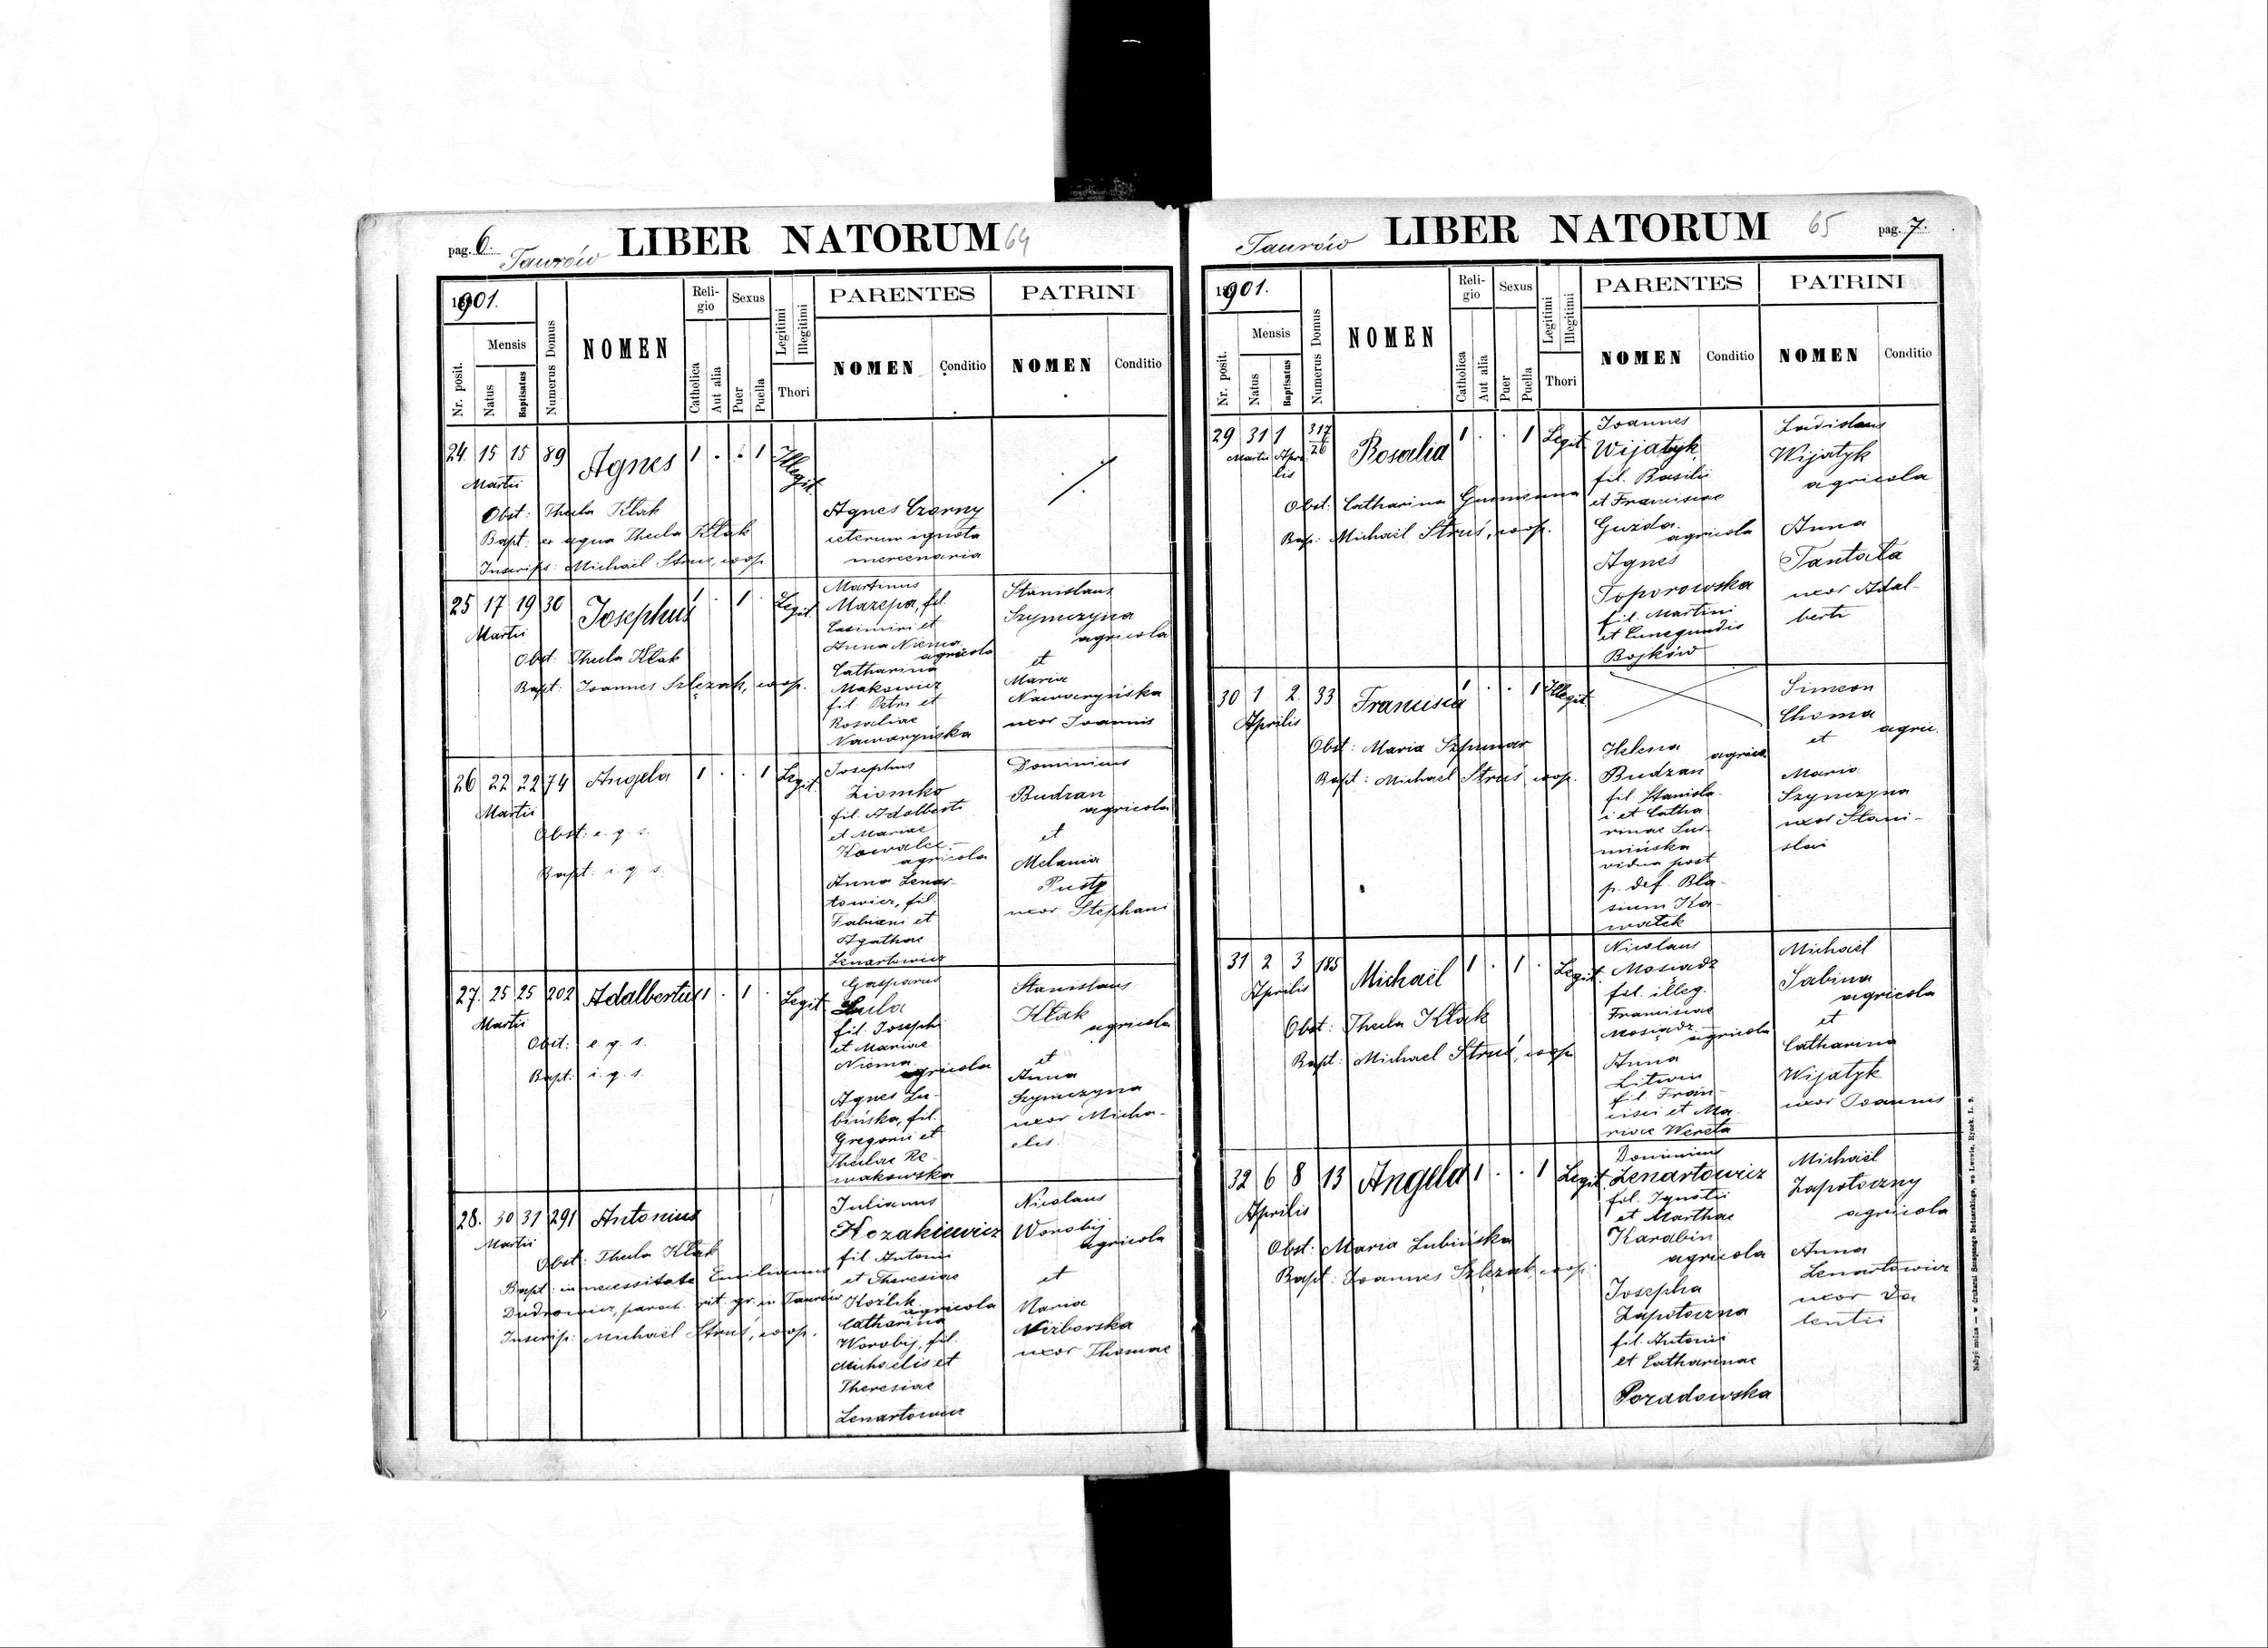 pag. 6. Taurów LIBER NATORUM 64
1901.
Nr. posit.
Mensis
Natus
Baptisatus
Numerus Domus
NOMEN
Religio
Catholica
Aut alia
Sexus
Puer
Puella
Legitimi
Illegitimi
Thori
PARENTES
NOMEN
Conditio
PATRINI
NOMEN
Conditio
24 15 15 89 Agnes 1 . . 1 Illegit.
Martii
Obst: Thecla Kłak
Bapt: ex aqua Thecla Kłak
Inscrips: Michaël Struś, coop.
Agnes Czarny
iterum ignota
mercenaria
25 17 19 30 Josephus 1 . 1 . Legit.
Martii
Obst: Thecla Kłak
Bapt: Joannes Szlęzak, coop.
Martinus
Mazepa, fil.
Casimiri et
Anna Niema
agricola
Catharina
Makowicz
fil. Petri et
Rosaliae
Nawaryńska
Stanislaus
Szymczyna
agricola
et
Maria
Nawaryńska
uxor Joannis
26 22 22 74 Angela 1 . . 1 Legit.
Martii
Obst: e. q. s.
Bapt: i. q. s.
Josephus
Ziomko
fil. Adalberti
et Mariae
Kowalec
agricola
Anna Lenar-
towicz, fil.
Fabiani et
Agathae
Lenartowicz
Dominicus
Budzan
agricola
et
Melania
Pusty
uxor Stephani
27. 25 25 202 Adalbertus 1 . 1 . Legit.
Martii
Obst: e. q. s.
Bapt: i. q. s.
Gasparus
Lula
fil. Josephi
et Mariae
Niema
agricola
Agnes Lu-
bińska, fil.
Gregorii et
Theclae Re-
makowska
Stanislaus
Kłak
agricola
et
Anna
Szymczyna
uxor Micha-
elis
28. 30 31 291 Antonius
Martii
Obst: Thecla Kłak
Bapt: in necessitate Emilianus
Dudrowicz, paroch. rit. gr. in Taurów
Inscrip: Michaël Struś, coop.
Julianus
Kozakiewicz
fil. Antonii
et Theresiae
Koźlik
agricola
Catharina
Worobij, fil.
Michaelis et
Theresiae
Lenartowicz
Nicolaus
Worobij
agricola
et
Maria
Niżborska
uxor Thomae
Taurów LIBER NATORUM 65 pag. 7.
1901.
Nr. posit.
Mensis
Natus
Baptisatus
Numerus Domus
NOMEN
Religio
Catholica
Aut alia
Sexus
Puer
Puella
Legitimi
Illegitimi
Thori
PARENTES
NOMEN
Conditio
PATRINI
NOMEN
Conditio
29 31 1 317/26 Rosalia 1 . . 1 Legit.
Martii Aprilis
Obst: Catharina
Bap: Michaël Struś, coop.
Joannes
Wijatyk
fil. Basilii
et Franciscae
Guzda
agricola
Agnes
Toporowska
fil. Martini
et Cunegundis
Bojków
Ladislaus
Wijatyk
agricola
Anna
Tantała
uxor Adal-
berti
30 1 2 33 Francisca 1 . . 1 Illegit.
Aprilis
Obst: Maria Szpunar
Bapt: Michaël Struś, coop.
Helena agricola
Budzan
fil. Stanisla-
i et Catha
rinae Sur-
mińska
vidua post
p. def. Bla-
sium Ka-
wałek
Simeon
Choma
agric.
et
Maria
Szymczyna
uxor Stani-
slai
31 2 3 185 Michaël 1 . 1 . Legit.
Aprilis
Obst: Thecla Kłak
Bapt: Michael Struś, coop
Nicolaus
Mosiądz
fil. illeg.
Franciscae
Mosiądz agricola
Anna
Litwin
fil. Fran-
cisci et Ma-
riae Wereta
Michaël
Sabina
agricola
et
Catharina
Wijatyk
uxor Joannis
32 6 8 13 Angela 1 . . 1 Legit.
Aprilis
Obst: Maria Lubińska
Bapt: Joannes Szlęzak, coop.
Dominicus
Lenartowicz
fil. Ignatii
et Marthae
Karabin
agricola
Josepha
Zapotoczna
fil. Antonii
et Catharinae
Poradowska
Michaël
Zapotoczny
agricola
Anna
Lenartowicz
uxor Va
lentii